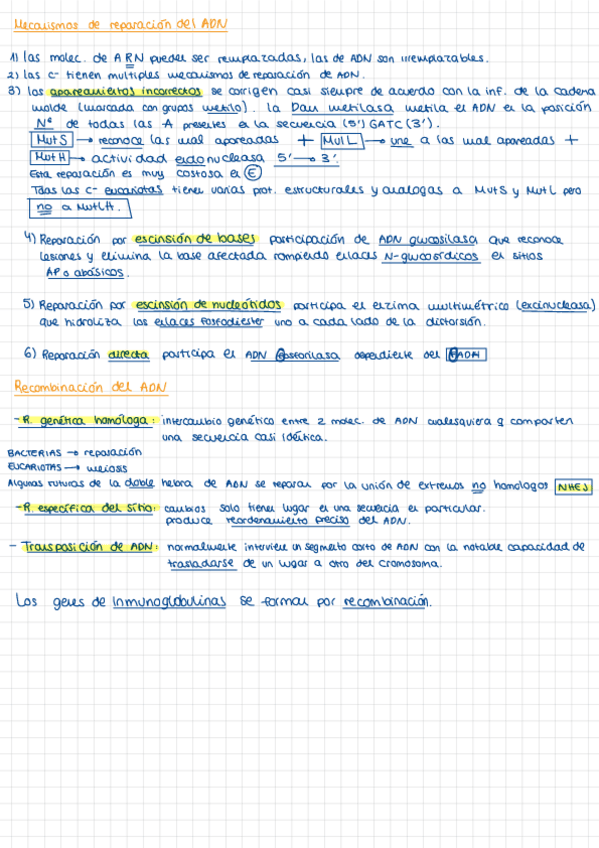 Mecanismos de reparación del ADN
1) las molec. de ARN pueden ser remplazadas, las de ADN son irremplazables.
2) las c- tienen multiples mecanismos de reparación de ADN.
3) los apareamientos incorrectos se corrigen casi siempre de acuerdo con la inf. de la cadena
molde (marcada con grupos metilo). la Dam metilasa metila el ADN en la posición
N⁶ de todas las A presentes en la secuencia (5') GATC (3').
MutS → reconoce las mal apareadas + MutL → une a las mal apareadas +
MutH → actividad endonucleasa 5' → 3'.
Esta reparación es muy costosa en E
Todas las c- eucariotas tienen varias prot. estructurales y analogas a MutS y MutL pero
no a MutH.
4) Reparación por escinsión de bases participación de ADN glucosilasa que reconoce
lesiones y elimina la base afectada rompiendo enlaces N-glucosídicos en sitios
AP o abásicos.
5) Reparación por escinsión de nucleótidos participa el enzima multimétrico (excinucleasa)
que hidroliza los enlaces fosfodiester uno a cada lado de la distorsión.
6) Reparación directa participa el ADN fosforilasa dependiente del FADH
Recombinación del ADN
- R. genética homóloga: intercambio genético entre 2 molec. de ADN cualesquiera q comparten
una secuencia casi idéntica.
BACTERIAS → reparación
EUCARIOTAS → meiosis
Algunas ruturas de la doble hebra de ADN se reparan por la unión de extremos no homologos NHEJ
- R. específica del sitio: cambios solo tienen lugar en una secuencia en particular.
produce reordenamiento preciso del ADN.
- Transposición de ADN: normalmente interviene un segmento corto de ADN con la notable capacidad de
trasladarse de un lugar a otro del cromosoma.
Los genes de inmunoglobulinas se forman por recombinación.